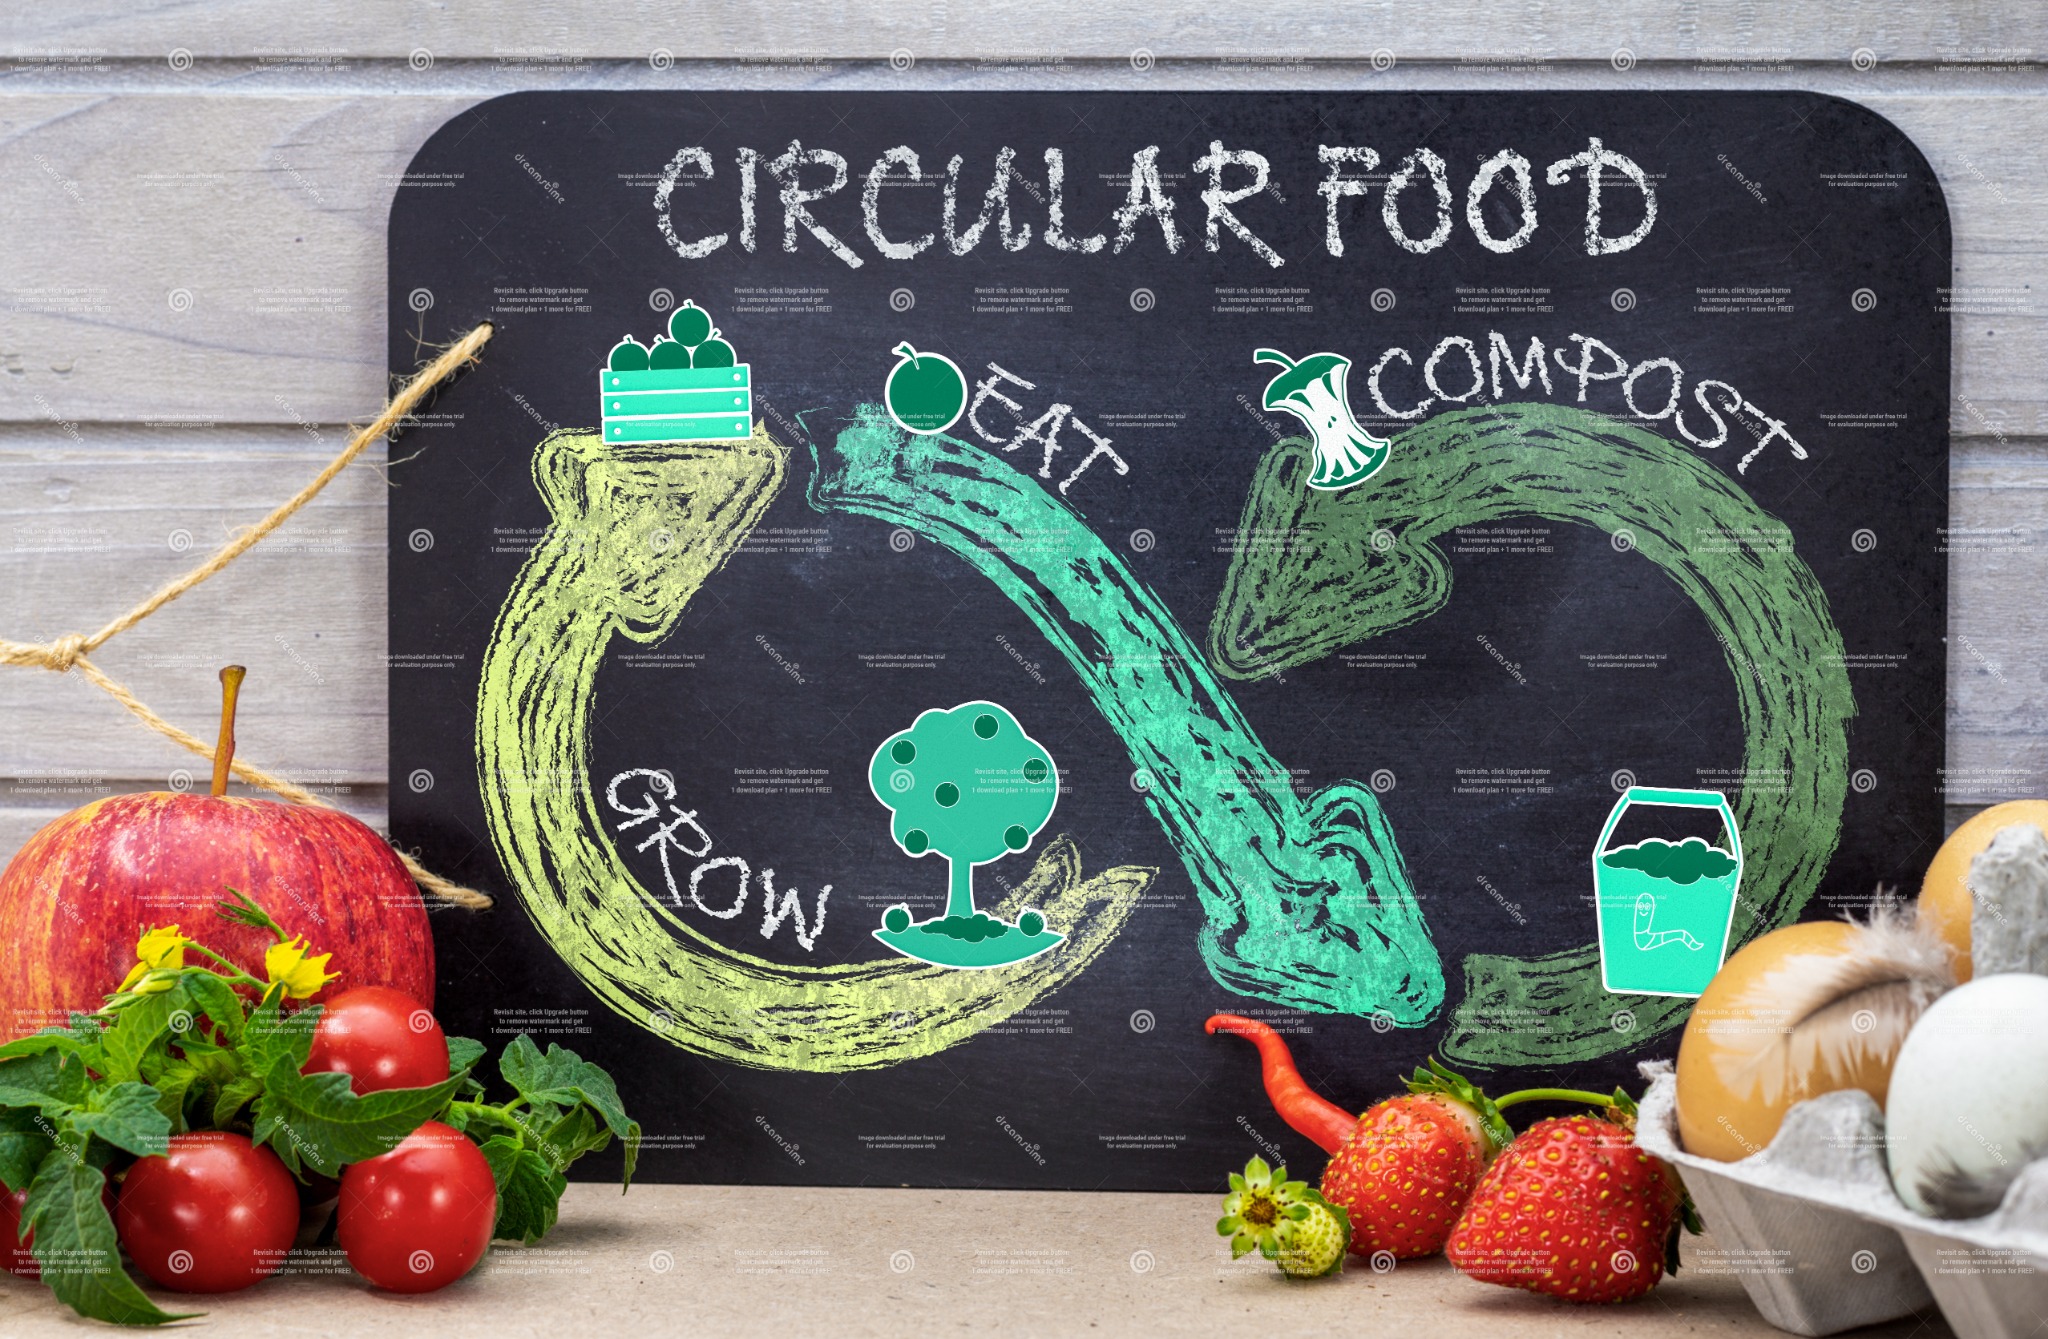 CIRCULAR FOOD
EAT
COMPOST
GROW
Revisit site, click Upgrade button
to remove watermark and get
1 download plan + 1 more for FREE!
Image downloaded under free trial
for evaluation purpose only.
dreamstime